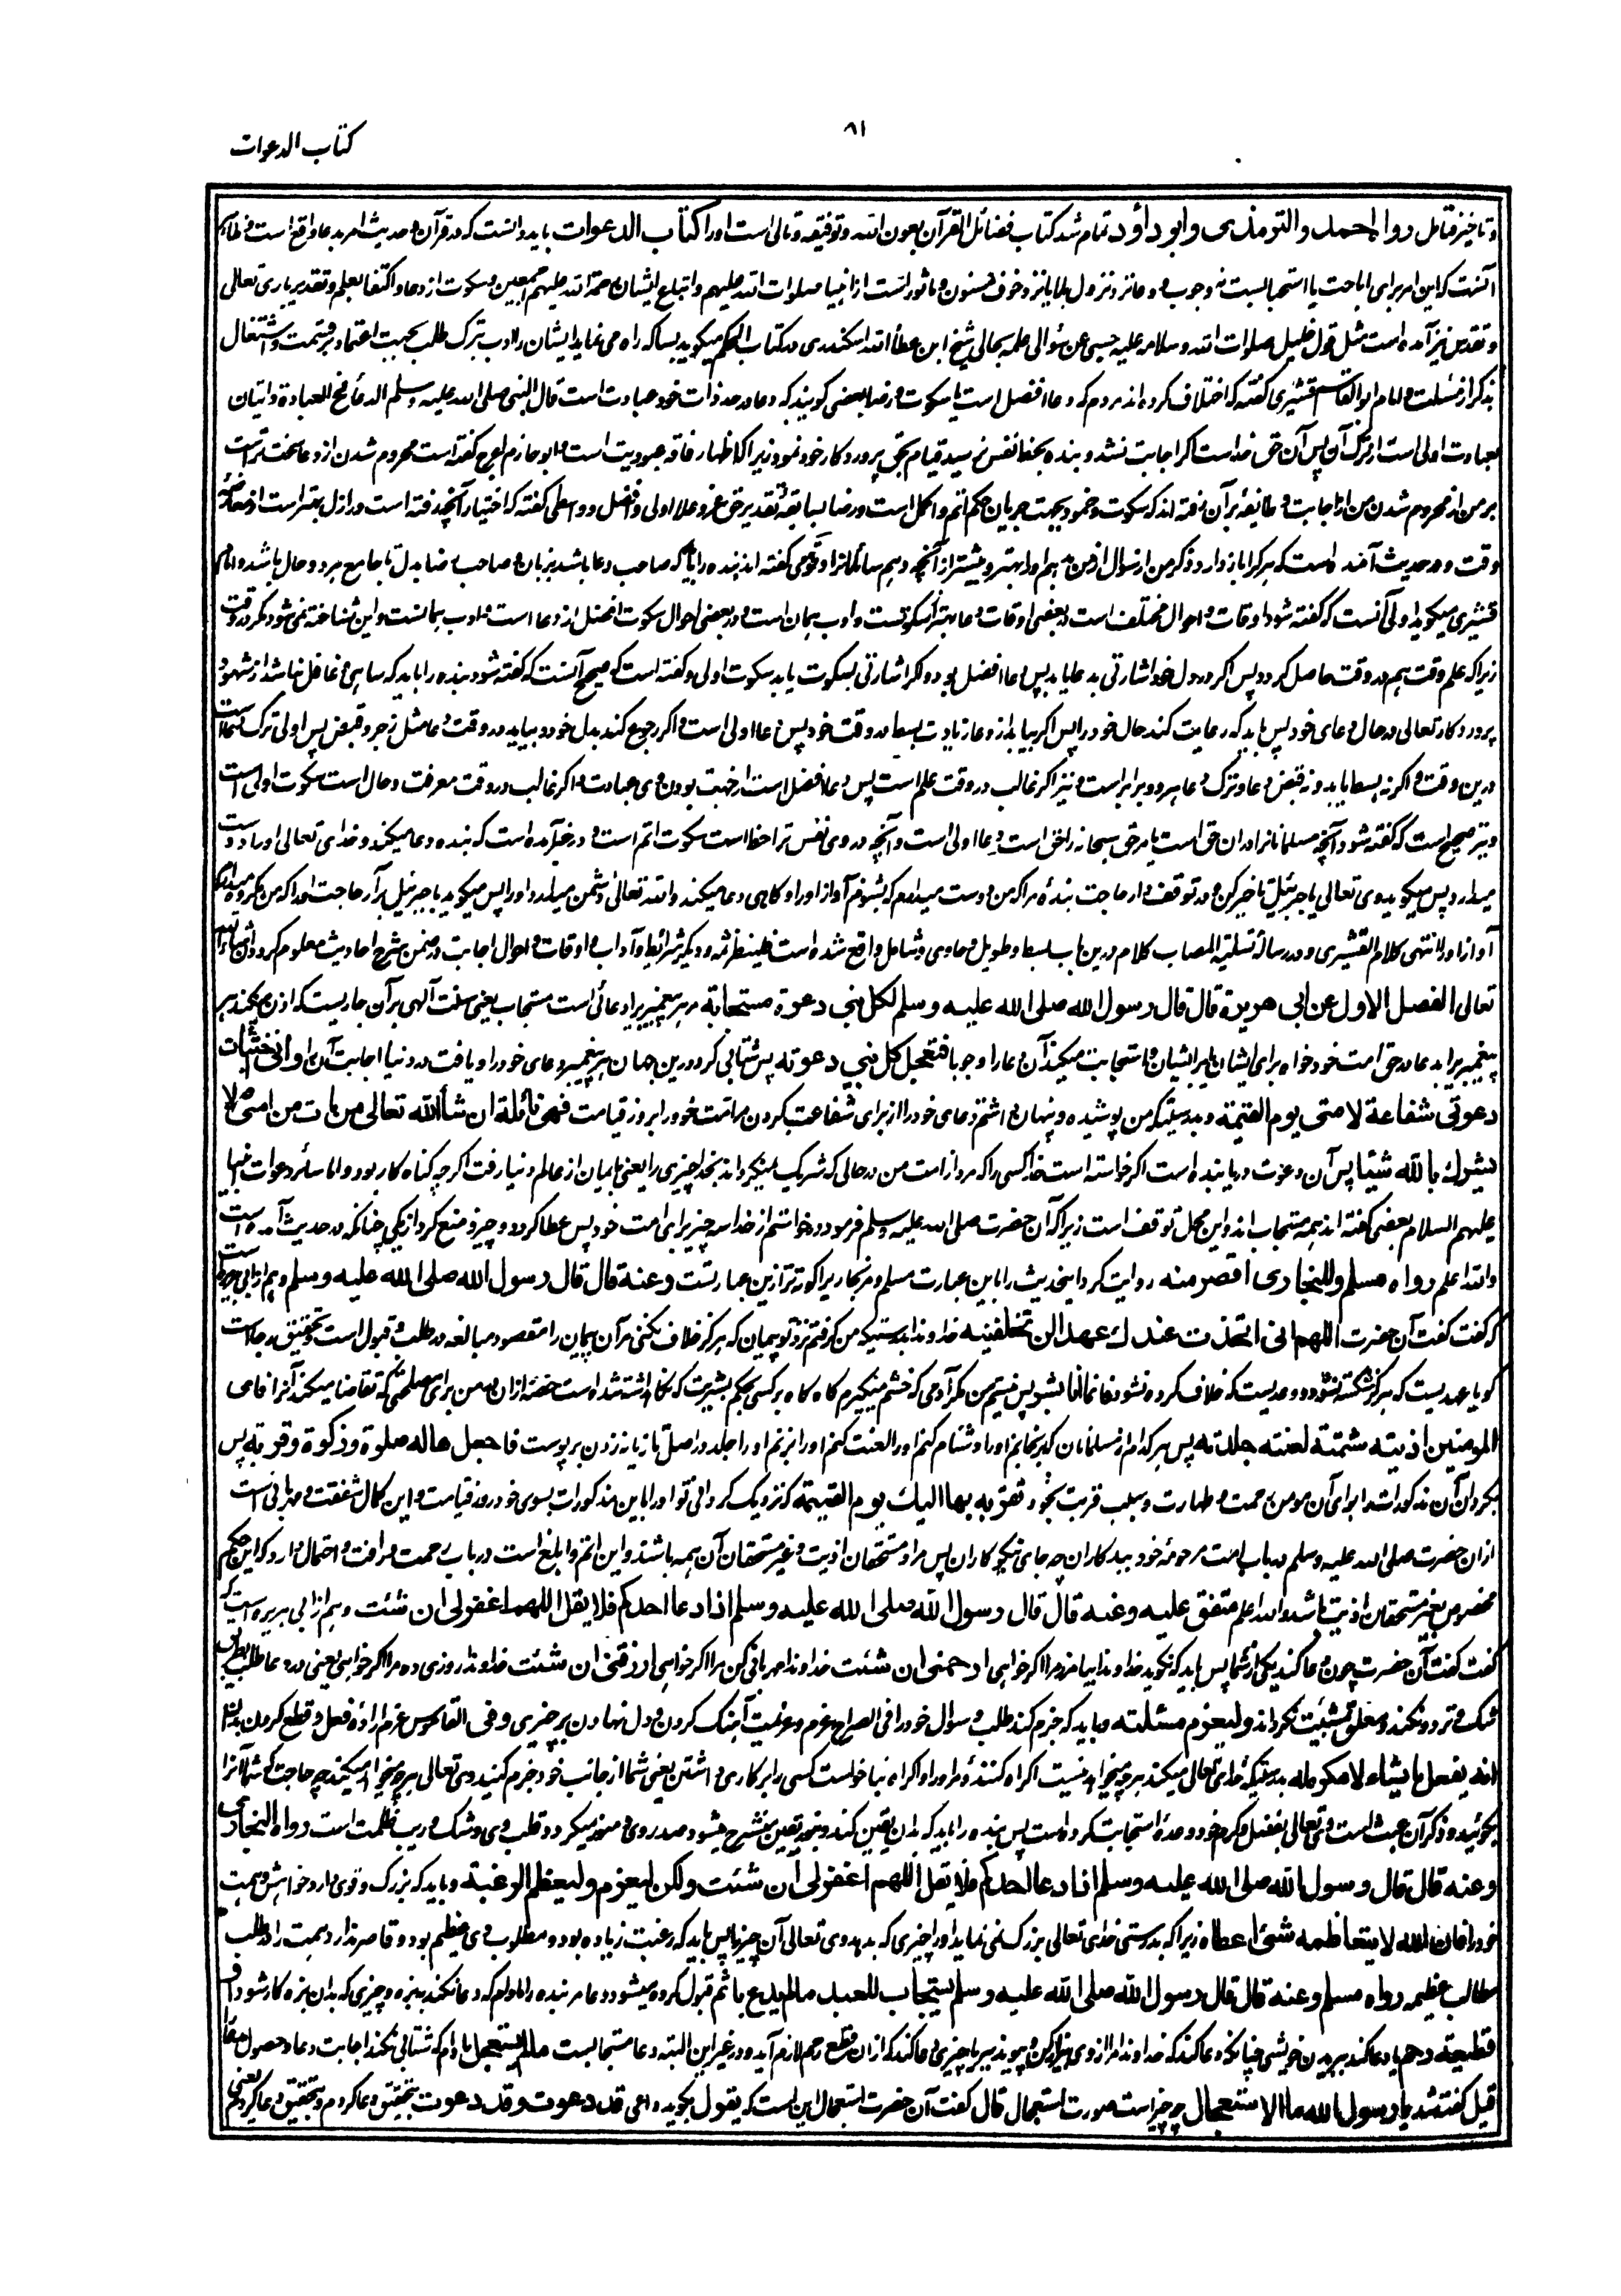 ٨١
کتاب الدعوات
وتاخیر فتامل رواه احمد والترمذی وابو داؤد تمام شد کتاب فضائل القرآن بعون الله وتوفیقه وتالی است اورا کتاب الدعوات باید دانست که در قرآن و حدیث امر بدعا واقع است و ظاهر
آنست که این امر برای اباحت یا استحبابست نه وجوب و دعا نزد نزول بلا یا نزد خوف مسنون و ماثور است از انبیا صلوات الله علیهم واتباع ایشان رحمة الله علیهم اجمعین و سکوت از دعا و اکتفا بعلم و تقدیر باری تعالی
و تقدس نیز آمده است مثل قول خلیل صلوات الله وسلامه علیه حسبی عن سؤالی علمه بحالی شیخ ابن عطاء الله اسکندری در کتاب الحکم میگوید بسا که راه می نماید ایشان را ادب بترک طلب بجهت اعتماد بر قسمت و اشتغال
بذکر از مسئلت و امام ابو القاسم قشیری گفته که اختلاف کرده اند مردم که دعا افضل است یا سکوت و رضا بعضی گویند که دعا در حد ذات خود عبادت است قال النبی صلی الله علیه وسلم الدعاء مخ العبادة و اتیان
بعبادت اولی است از ترک آن پس آن حق خداست اگر اجابت نشد و بنده بحظ نفس نرسید قیام بحق پروردگار خود نمود زیراکه اظهار فاقه عبودیت است و ابو حازم اعرج گفته است محروم شدن از دعا سخت تر است
بر من از محروم شدن من از اجابت و طائفه بر آن رفته اند که سکوت و خمود بجهت جریان حکم اتم و اکمل است و رضا بسابقهٔ تقدیر حق عز و علا اولی و افضل و واسطی گفته که اختیار آنچه رفته است در ازل بهتر است از معارضه
وقت و در حدیث آمده است که هرکرا باز دارد ذکر من از سوال از من بدهم او را بهتر و بیشتر از آنچه دهم سائلانرا و قومی گفته اند بنده را باید که صاحب دعا باشد بزبان و صاحب رضا بدل تا جامع هر دو حال باشد و امام
قشیری میگوید اولی آنست که گفته شود اوقات و احوال مختلف است در بعضی اوقات دعا بهتر از سکوتست و ادب همان است و در بعضی احوال سکوت افضل از دعا است و ادب همانست و این شناخته نمی شود مگر در وقت
زیراکه علم وقت هم در وقت حاصل گردد پس اگر در دل خود اشارتی بدعا یابد پس دعا افضل بود و اگر اشارتی بسکوت یابد سکوت اولی و گفته است که صحیح آنست که گفته شود بنده را باید که ساهی و غافل نباشد از شهود
پروردگار تعالی در حال دعای خود پس باید که رعایت کند حال خود را پس اگر بیابد از دعا زیادت بسط در وقت خود پس دعا اولی است و اگر رجوع کند بدل خود و بیابد در وقت دعا مثل زجر و قبض پس اولی ترک دعاست
درین وقت و اگر نه بسط یابد و نه قبض دعا و ترک دعا هر دو برابر است و نیز اگر غالب در وقت علم است پس دعا افضل است از جهت بودن وی عبادت و اگر غالب در وقت معرفت و حال است سکوت اولی است
و نیز صحیح است که گفته شود آنچه مسلمانانرا در آن حق است یا مر حق سبحانه را حق است دعا اولی است و آنچه در وی نفس ترا حظ است سکوت اتم است و در خبر آمده است که بنده دعا میکند و خدای تعالی او را دوست
میدارد پس میگوید وی تعالی یا جبرئیل تاخیر کن و در توقف دار حاجت بندهٔ مرا که من دوست میدارم که بشنوم آواز او را و گاهی دعا میکند و الله تعالی دشمن میدارد او را پس میگوید یا جبرئیل بر آر حاجت او را که من مکروه میدارم
آواز او را انتهی کلام القشیری و در رسالهٔ تسلیة المصاب کلام درین باب بسط و طویل و حاوی و شامل واقع شده است فلینظر ثمه و دیگر شرائط و آداب و اوقات و احوال اجابت در ضمن شرح احادیث معلوم گردد ان شاء الله
تعالی الفصل الاول عن ابی هریرة قال قال رسول الله صلی الله علیه وسلم لکل نبی دعوة مستجابة مر هر پیغمبر را دعائی است مستجاب یعنی سنت آلهی بر آن جاریست که اذن میکند هر
پیغمبر را بدعا در حق امت خود خواه برای ایشان یا بر ایشان و استجابت میکند آن دعا را وجوبا فتعجل کل نبی دعوته پس شتابی کرد درین جهان هر پیغمبر دعای خود را و یافت در دنیا اجابت آن را وانی اختبات
دعوتی شفاعة لامتی یوم القیمة و بدرستیکه من پوشیده و پنهان داشتم دعای خود را از برای شفاعت کردن مر امت خود را بروز قیامت فهی نائلة ان شاء الله تعالی من مات من امتی لا
یشرك بالله شیئا پس آن دعوت دریابنده است اگر خواسته است خدا کسی را که مرد از امت من در حالی که شریک نمیگرداند بخدا چیزی را یعنی با ایمان از عالم دنیا رفت اگرچه گناه کار بود و اما سائر دعوات انبیا
علیهم السلام بعضی گفته اند همه مستجاب اند و این محل توقف است زیراکه آن حضرت صلی الله علیه وسلم فرمود درخواستم از خدا سه چیز برای امت خود پس عطا کرد دو چیز و منع کرد از یکی چنانکه در حدیث آمده است
والله اعلم رواه مسلم وللبخاری اقصر منه روایت کرد این حدیث را باین عبارت مسلم و مر بخاریرا کوتاه تر ازین عبارتست وعنه قال قال رسول الله صلی الله علیه وسلم و هم از ابی هریره است
که گفت گفت آن حضرت اللهم انی اتخذت عندك عهدا لن تخلفنیه خداوندا بدرستیکه من گرفتم نزد تو پیمان که هرگز خلاف نکنی مر آن پیمان را مقصود مبالغه در طلب قبول است و تحقیق رجا است
گویا عهدیست که هرگز شکسته نشود و وعدیست که خلاف کرده نشود فانما انا بشر پس نیستم من مگر آدمی که خشم میگیرم گاه گاه بر کسی بحکم بشریت که نگاه داشته شده است حصهٔ ازان در من برای مصلحتی که تقاضا میکند آنرا فای
المومنین اذیته شتمته لعنته جلدته پس هر کدام از مسلمانان که برنجانم او را و دشنام کنم او را لعنت کنم او را بزنم او را جلد در اصل تازیانه زدن بر پوست فاجعلها له صلوة وزکوة وقربة پس
بگردان آن مذکورات را برای آن مومن رحمت و طهارت و سبب قربت بخود تقربه بها الیك یوم القیمة که نزدیک گردانی تو او را باین مذکورات بسوی خود روز قیامت و این کمال شفقت و مهربانی است
ازان حضرت صلی الله علیه وسلم در باب امت مرحومهٔ خود ببدکاران چه جای نیکوکاران پس مراد مستحقان اذیت و غیر مستحقان آن همه باشند و این اتم و ابلغ است در باب رحمت و رافت و احتمال دارد که این حکم
مخصوص بغیر مستحقان اذیت باشد والله اعلم متفق علیه وعنه قال قال رسول الله صلی الله علیه وسلم اذا دعا احدکم فلا یقل اللهم اغفرلی ان شئت و هم از ابی هریره است که
گفت گفت آن حضرت چون دعا کند یکی از شما پس باید که نگوید خداوندا بیامرز مرا اگر خواهی ارحمنی ان شئت خداوندا مهربانی کن مرا اگر خواهی ارزقنی ان شئت خداوندا روزی ده مرا اگر خواهی یعنی در دعا طلب بطریق
شک و تردد نکند و معلق بمشیت نگرداند ولیعزم مسئلته و باید که جزم کند طلب و سوال خود را فی الصراح عزم و عزیمت آهنگ کردن و دل نهادن بر چیزی وفی القاموس عزم ارادهٔ فعل و قطع کردن بدان
انه یفعل ما یشاء لا مکره له بدرستیکه خدای تعالی میکند هرچه میخواهد نیست اکراه کنندهٔ مر او را و اکراه بناخواست کسی را بر کاری داشتن یعنی شما از جانب خود جزم کنید وی تعالی هرچه میخواهد میکند چه حاجت که شما آنرا
بگوئید و ذکر آن عبث است وی تعالی بفضل و کرم خود وعدهٔ استجابت کرده است پس بنده را باید که بدان یقین کند و بنور یقین منشرح میشود صدر وی و منور میگردد قلب وی و شک و ریب ظلمت است رواه البخاری
وعنه قال قال رسول الله صلی الله علیه وسلم اذا دعا احدکم فلا یقل اللهم اغفرلی ان شئت ولکن لیعزم ولیعظم الرغبة و باید که بزرگ و قوی دارد خواهش و همت
خود را فان الله لا یتعاظمه شئ اعطاه زیراکه بدرستی خدای تعالی بزرگ نمی نماید او را چیزی که بدهد وی تعالی آن چیز را پس باید که رغبت زیاده بود و مطلوب وی عظیم بود و قاصر ندارد همت را در طلب
مطالب عظیمه رواه مسلم وعنه قال قال رسول الله صلی الله علیه وسلم یستجاب للعبد مالم یدع باثم قبول کرده میشود دعا مر بنده را مادام که دعا نکند ببزه و چیزی که بدان بزه کار شود او
قطیعة رحم یا دعا کند ببریدن خویشی چنانکه دعا کند که خداوندا مرا از وی بریده کن و مپیوند یا چیزی دعا کند که ازان قطع رحم لازم آید و در غیر این البته دعا مستجابست مالم یستعجل مادام که شتابی نکند اجابت دعا و حصول مدعا
قیل گفته شد یا رسول الله ما الاستعجال چه چیز است صورت استعجال قال گفت آن حضرت استعجال این است که یقول بگوید داعی قد دعوت وقد دعوت بتحقیق دعا کردم و بتحقیق دعا کردم یعنی